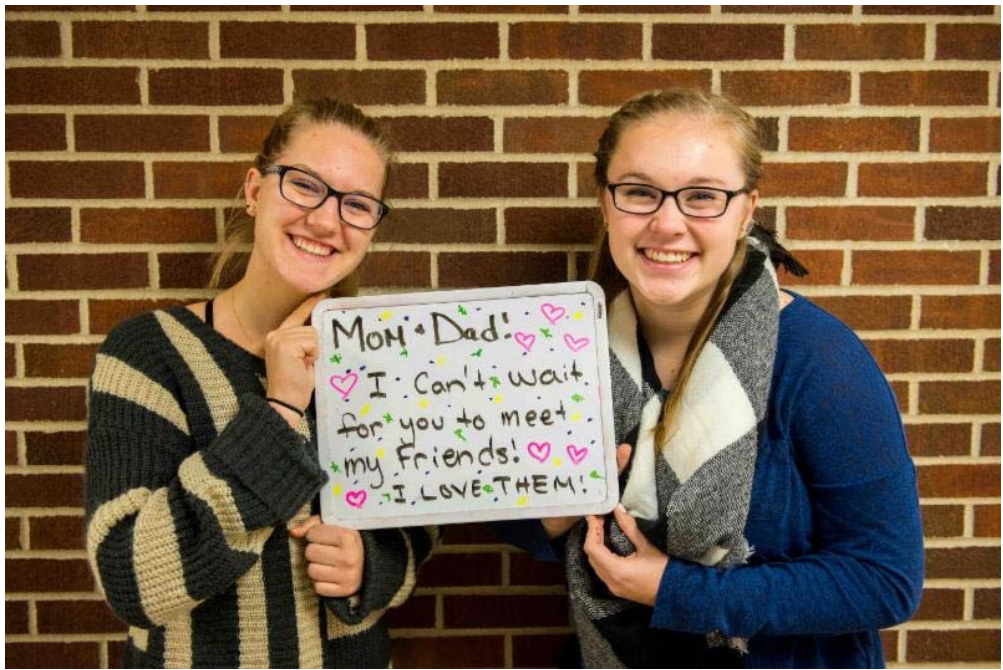 Mom + Dad!
I Can't wait
for you to meet
my Friends!
I LOVE THEM!